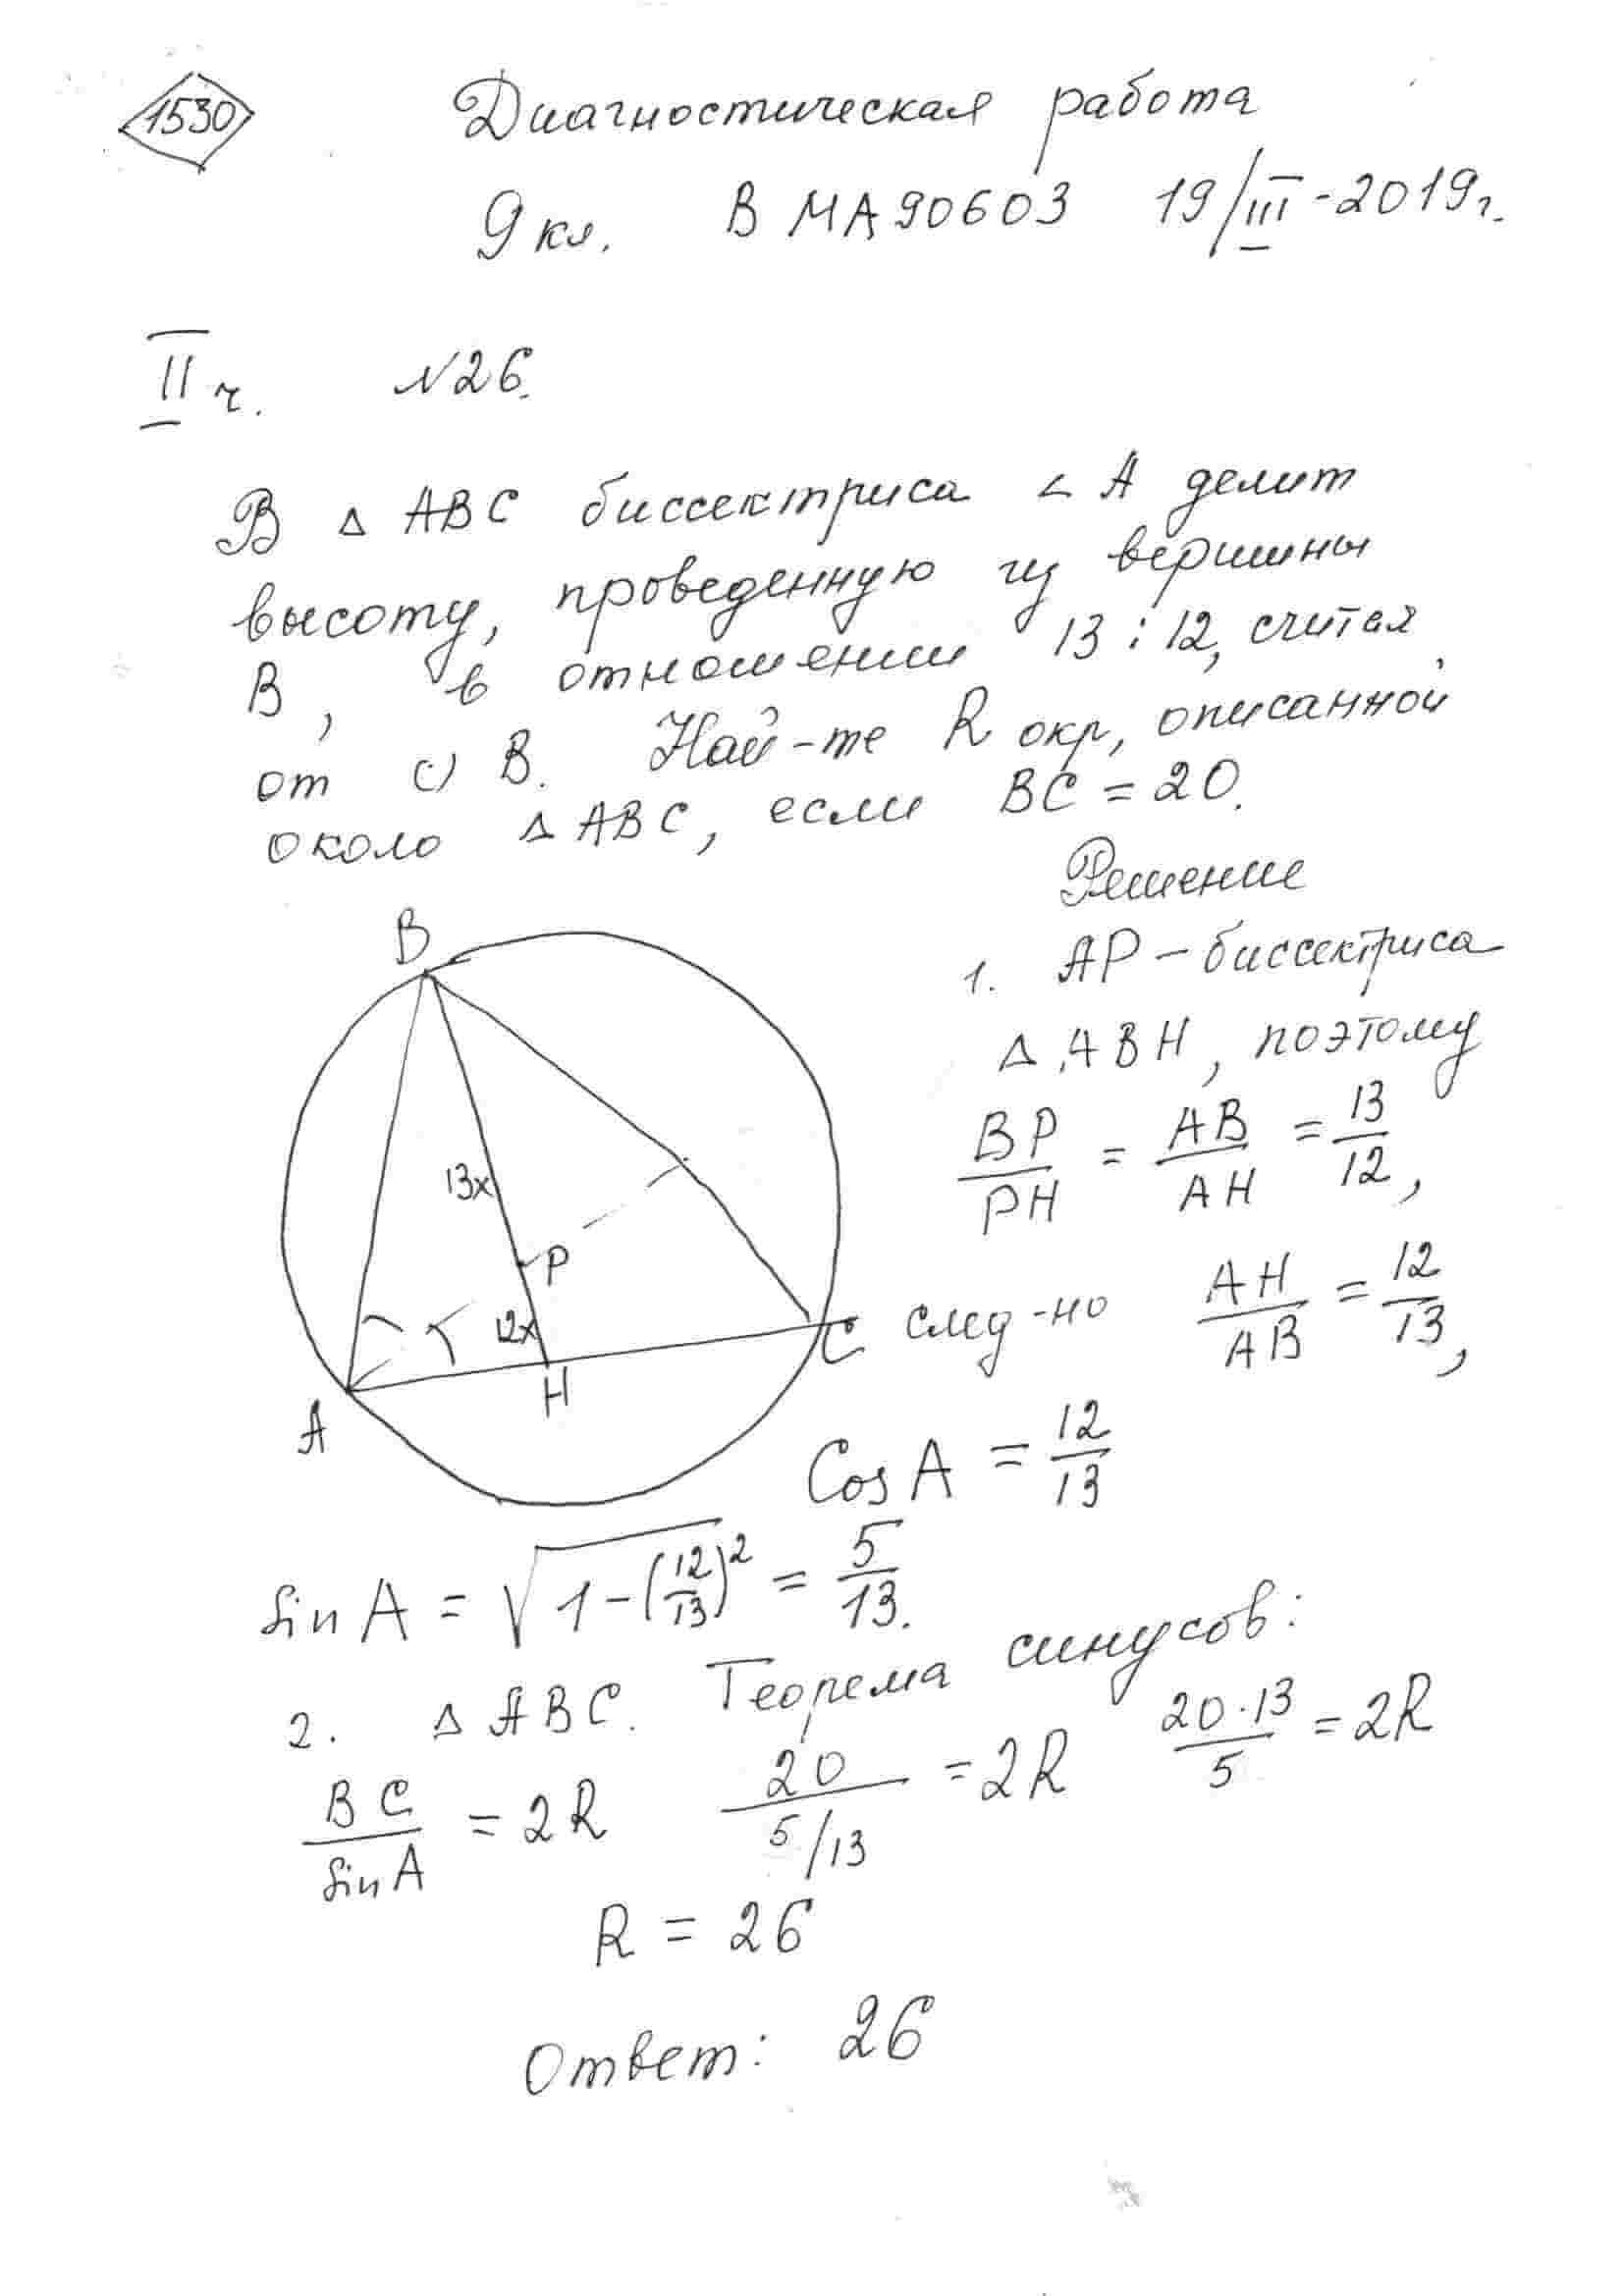 1530
Диагностическая работа
9 кл. В МА90603 19/III-2019г.
II ч. №26.
В △ ABC биссектриса < A делит
высоту, проведенную из вершины
B, в отношении 13:12, считая
от (·) B. Най-те R окр, описанной
около △ ABC, если BC = 20.
Решение
1. AP – биссектриса
△ ABH, поэтому
BP/PH = AB/AH = 13/12,
след-но AH/AB = 12/13,
Cos A = 12/13
B
13x
P
12x
C
H
A
sin A = √(1-(12/13)²) = 5/13.
2. △ ABC. Теорема синусов:
BC/sin A = 2R 20/(5/13) = 2R 20·13/5 = 2R
R = 26
Ответ: 26